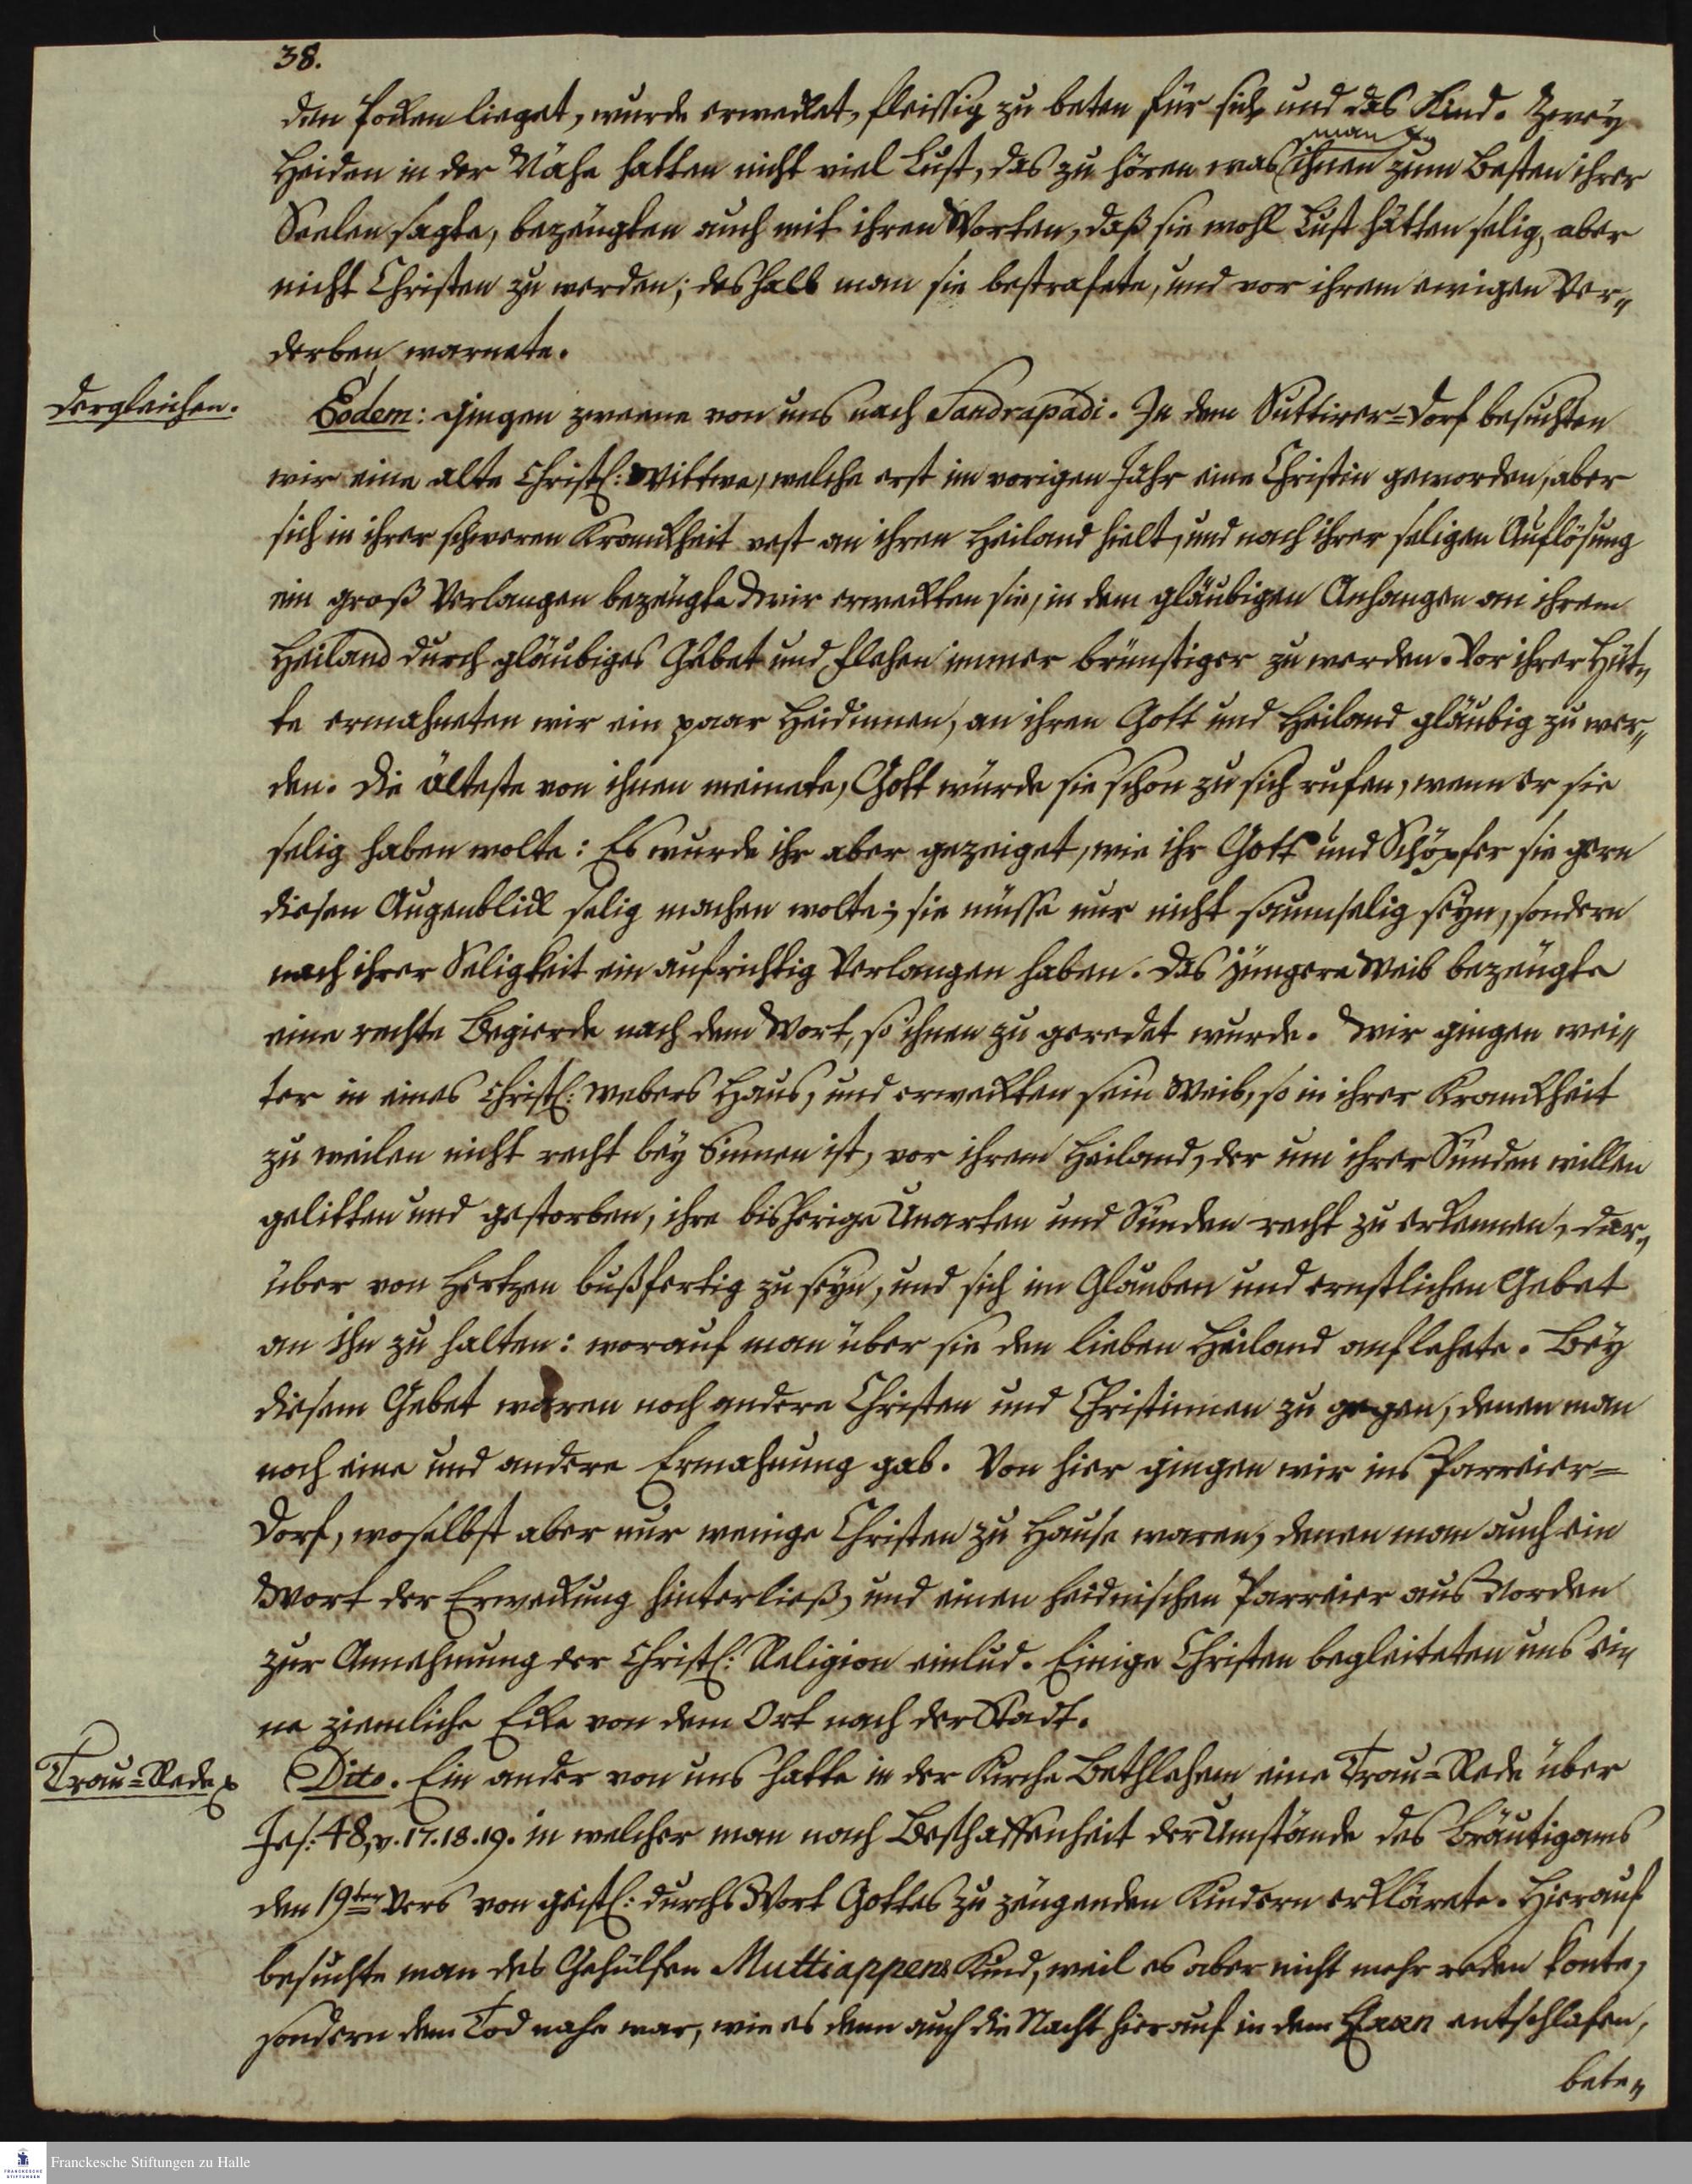 38.
den Pocken lieget, wurde erwecket, fleissig zu beten für sich und das Kind. Zwey
Heiden in der Nähe hatten nicht viel Lust, das zu hören was man ihnen zum Besten ihrer
Seelen sagte, bezeugten auch mit ihren Worten, daß sie wohl Lust hätten selig, aber
nicht Christen zu werden; deshalb man sie bestrafete, und vor ihrem ewigen Ver„
derben warnete.
Dergleichen.
Eodem: gingen zweene von uns nach Sandrapadi. In dem Suttirer=Dorf besuchten
wir eine alte Christl: Wittwe, welche erst im vorigen Jahr eine Christin geworden, aber
sich in ihrer schweren Kranckheit vest an ihren Heiland hielt, und nach ihrer seligen Auflösung
ein groß Verlangen bezeugte. Wir erweckten sie, in dem gläubigen Anhangen an ihrem
Heiland durch gläubiges Gebet und Flehen immer brünstiger zu werden. Vor ihrer Hüt„
te ermahneten wir ein paar Heidinnen, an ihren Gott und Heiland gläubig zu wer„
den. Die älteste von ihnen meinete, Gott würde sie schon zu sich rufen, wenn er sie
selig haben wolte: Es wurde ihr aber gezeiget, wie ihr Gott und Schöpfer sie gern
diesen Augenblick selig machen wolte; sie müsse nur nicht saumselig seyn, sondern
nach ihrer Seligkeit ein aufrichtig Verlangen haben. Das jüngere Weib bezeugte
eine rechte Begierde nach dem Wort, so ihnen zu geredet wurde. Wir gingen wei„
ter in eines Christl: Webers Haus, und erweckten sein Weib, so in ihrer Kranckheit
zu weilen nicht recht bey Sinnen ist, vor ihrem Heiland, der um ihrer Sünden willen
gelitten und gestorben, ihre bisherige Unarten und Sünden recht zu erkennen, dar„
über von Hertzen bußfertig zu seyn, und sich im Glauben und ernstlichen Gebet
an Ihn zu halten: worauf man über sie den lieben Heiland anflehete. Bey
diesem Gebet waren noch andere Christen und Christinnen zu gegen, denen man
noch eine und andere Ermahnung gab. Von hier gingen wir ins Parreier=
Dorf, woselbst aber nur wenige Christen zu Hause waren, denen man auch ein
Wort der Erweckung hinterließ, und einen heidnischen Parreier aus Norden
zur Annehmung der Christl: Religion einlud. Einige Christen begleiteten uns ei„
ne ziemliche Ecke von dem Ort nach der Stadt.
Trau=Rede
Dito. Ein ander von uns hatte in der Kirche Bethlehem eine Trau=Rede über
Jes: 48, v. 17. 18. 19. in welcher man nach Beschaffenheit der Umstände des Bräutigams
den 19ten Vers von geistl: durchs Wort Gottes zu zeugenden Kindern erklärete. Hierauf
besuchte man des Gehülfen Muttiappens Kind, weil es aber nicht mehr reden konte,
sondern dem Tod nahe war, wie es denn auch die Nacht hierauf in dem Herrn entschlafen,
bete„
Franckesche Stiftungen zu Halle
FRANCKESCHE STIFTUNGEN